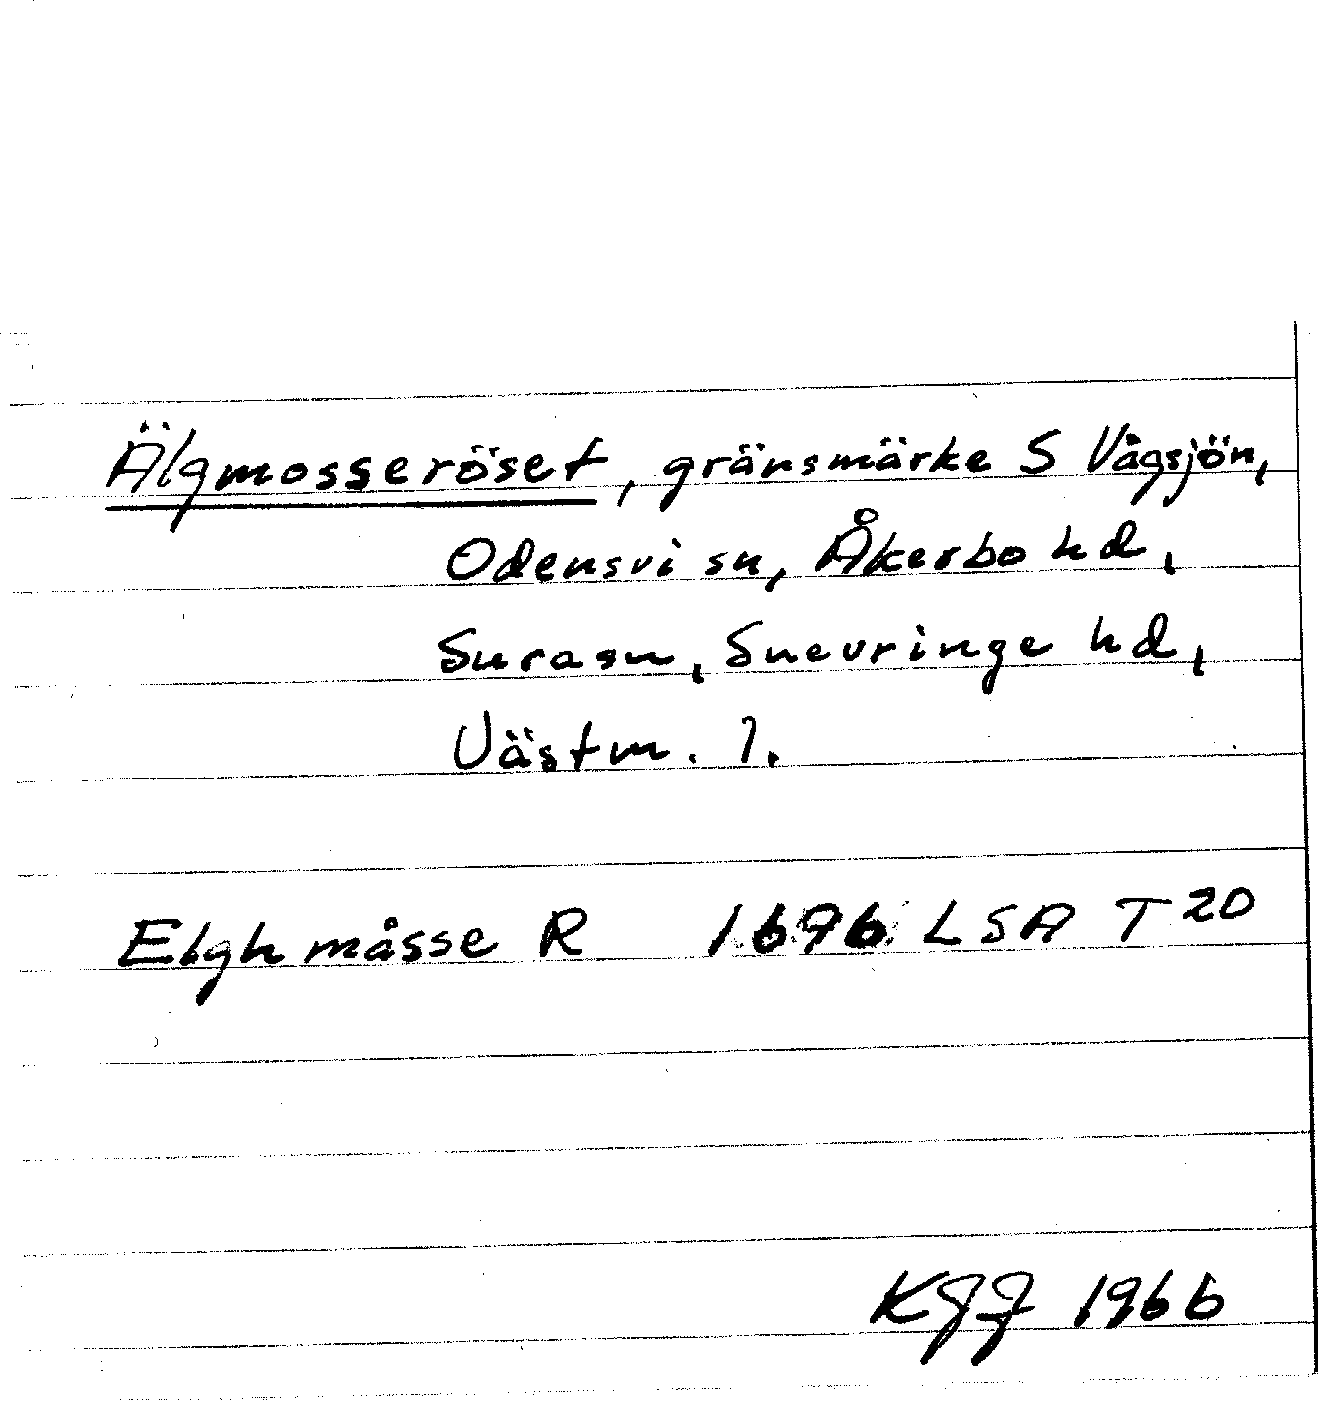 Älgmosseröset, gränsmärke S Vågsjön,
Odensvi sn, Åkerbo hd,
Sura sn, Snevringe hd,
Västm. l.
Elgh måsse R 1696 LSA T 20
1966